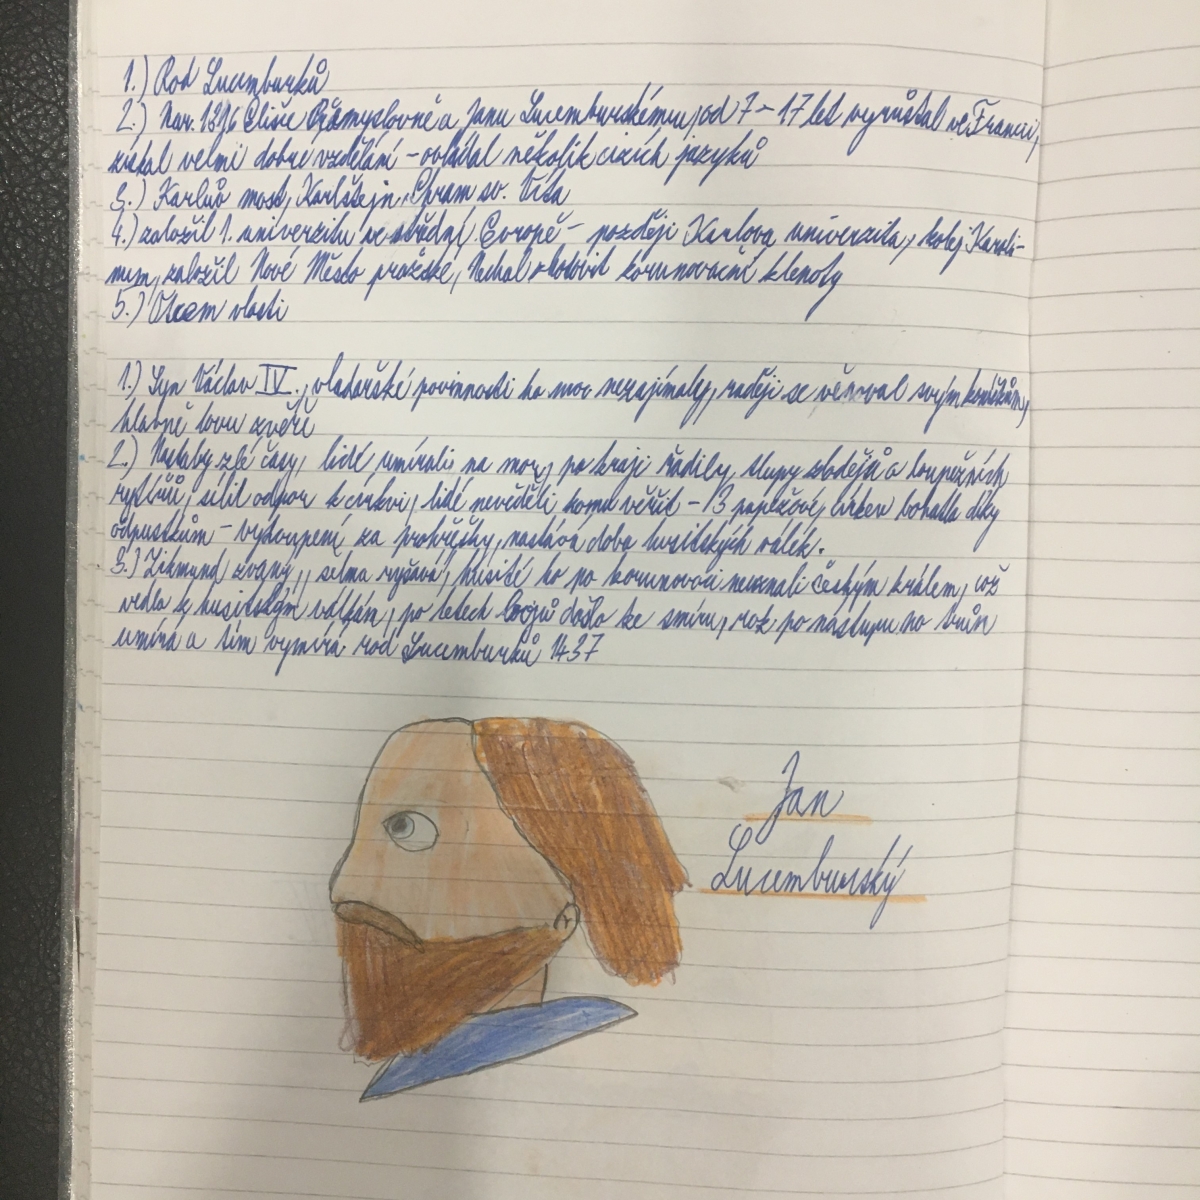 1.) Rod Lucemburků
2.) Nar. 1316 Elišce Přemyslovně a Janu Lucemburskému, od 7-17 let vyrůstal ve Francii,
získal velmi dobré vzdělání - ovládal několik cizích jazyků
3.) Karlův most, Karlštejn, Chram sv. Víta
4.) založil 1. univerzitu ve střední Evropě - později Karlova univerzita, kolej Karoli-
num, založil Nové Město pražské, Nechal zhotovit korunovační klenoty
5.) Otcem vlasti
1.) Syn Václav IV., vladařské povinnosti ho moc nezajímaly, raději se věnoval svým koníčkům,
hlavně lovu zvěře
2.) Nastaly zlé časy, lidé umírali na mor, po kraji řádily tlupy zlodějů a loupežných
rytířů, sílil odpor k církvi, lidé nevěděli komu věřit - 3 papežové, církev bohatla díky
odpustkům - vykoupení za prohřešky, nastává doba husitských válek.
3.) Zikmund zvaný ,,šelma ryšavá, husité ho po korunovaci neuznali českým králem, což
vedlo k husitským válkám, po letech bojů došlo ke smíru, rok po nástupu na trůn
umírá a tím vymírá rod Lucemburků 1437
Jan
Lucemburský